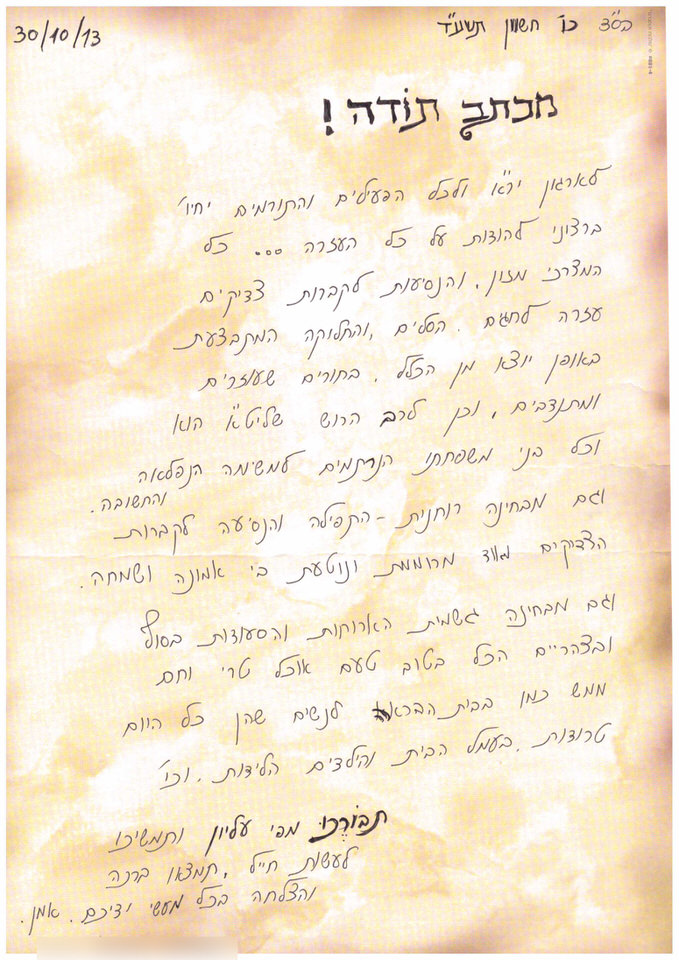 בס״ד כו׳ חשוון תשע״ד
30/10/13
מכתב תודה!
לארגון יר״א ולכל הפעילים והתורמים יחיו׳
ברצוני להודות על כל העזרה ... כל
המצרכי מזון, והנסיעות לקברות צדיקים
עזרה לחגים. הסלים, והחלוקה המתבצעת
באופן יוצא מן הכלל. בחורים שעוזרים
ומתנדבים, וכן לרב הרוש שליט״א הוא
וכל בני משפחתו הנרתמים למשימה הנפלאה
והחשובה.
וגם מבחינה רוחנית - התפילה והנסיעה לקברות
הצדיקים מאד מרוממת ונוטעת בי אמונה ושמחה.
וגם מבחינה גשמית הארוחות והסעודות בסוף
ובצהריים הכל בטוב טעם אוכל טרי וחם
ממש כמו בבית הבראה לנשים שהן כל היום
טרודות. בעמל הבית והילדים הלידות. וכו׳
תבורכו מפי עליון ותמשיכו
לעשות חייל, תמצאו ברכה
והצלחה בכל מעשי ידיכם. אמן.